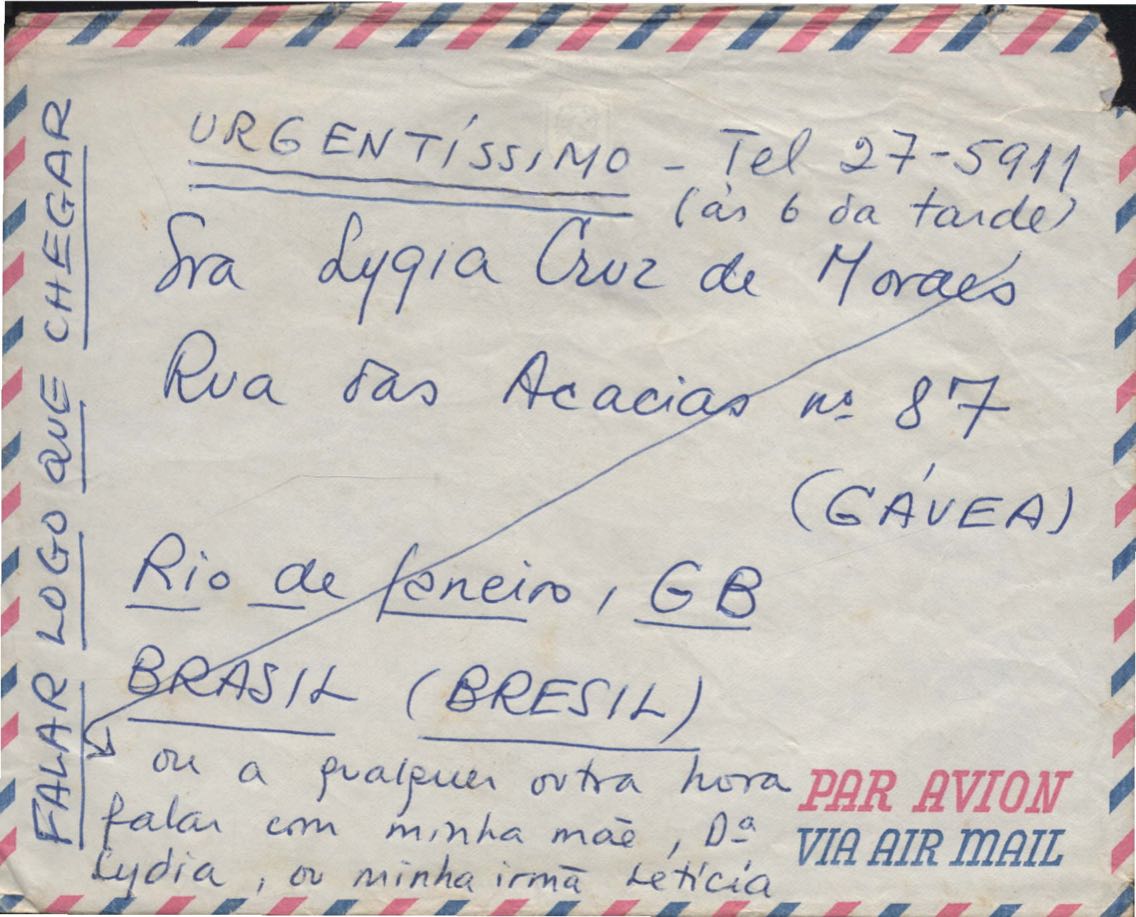 URGENTÍSSIMO - Tel 27-5911
(às 6 da tarde)
Sra Lygia Cruz de Moraes
Rua das Acacias nº 87
(GÁVEA)
Rio de Janeiro, GB
BRASIL (BRESIL)
ou a qualquer outra hora
falar com minha mãe, Dª
Lydia, ou minha irmã Letícia
FALAR LOGO QUE CHEGAR
PAR AVION
VIA AIR MAIL